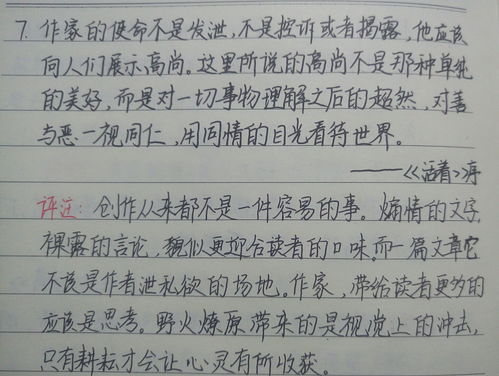 7. 作家的使命不是发泄,不是控诉或者揭露,他应该
向人们展示高尚。这里所说的高尚不是那种单纯
的美好,而是对一切事物理解之后的超然,对善
与恶一视同仁,用同情的目光看待世界。
——《活着》序
评注:创作从来都不是一件容易的事。煽情的文字,
裸露的言论,貌似更迎合读者的口味。而一篇文章它
不该是作者泄私欲的场地。作家,带给读者更多的
应该是思考。野火燎原带来的是视觉上的冲击,
只有耕耘才会让心灵有所收获。